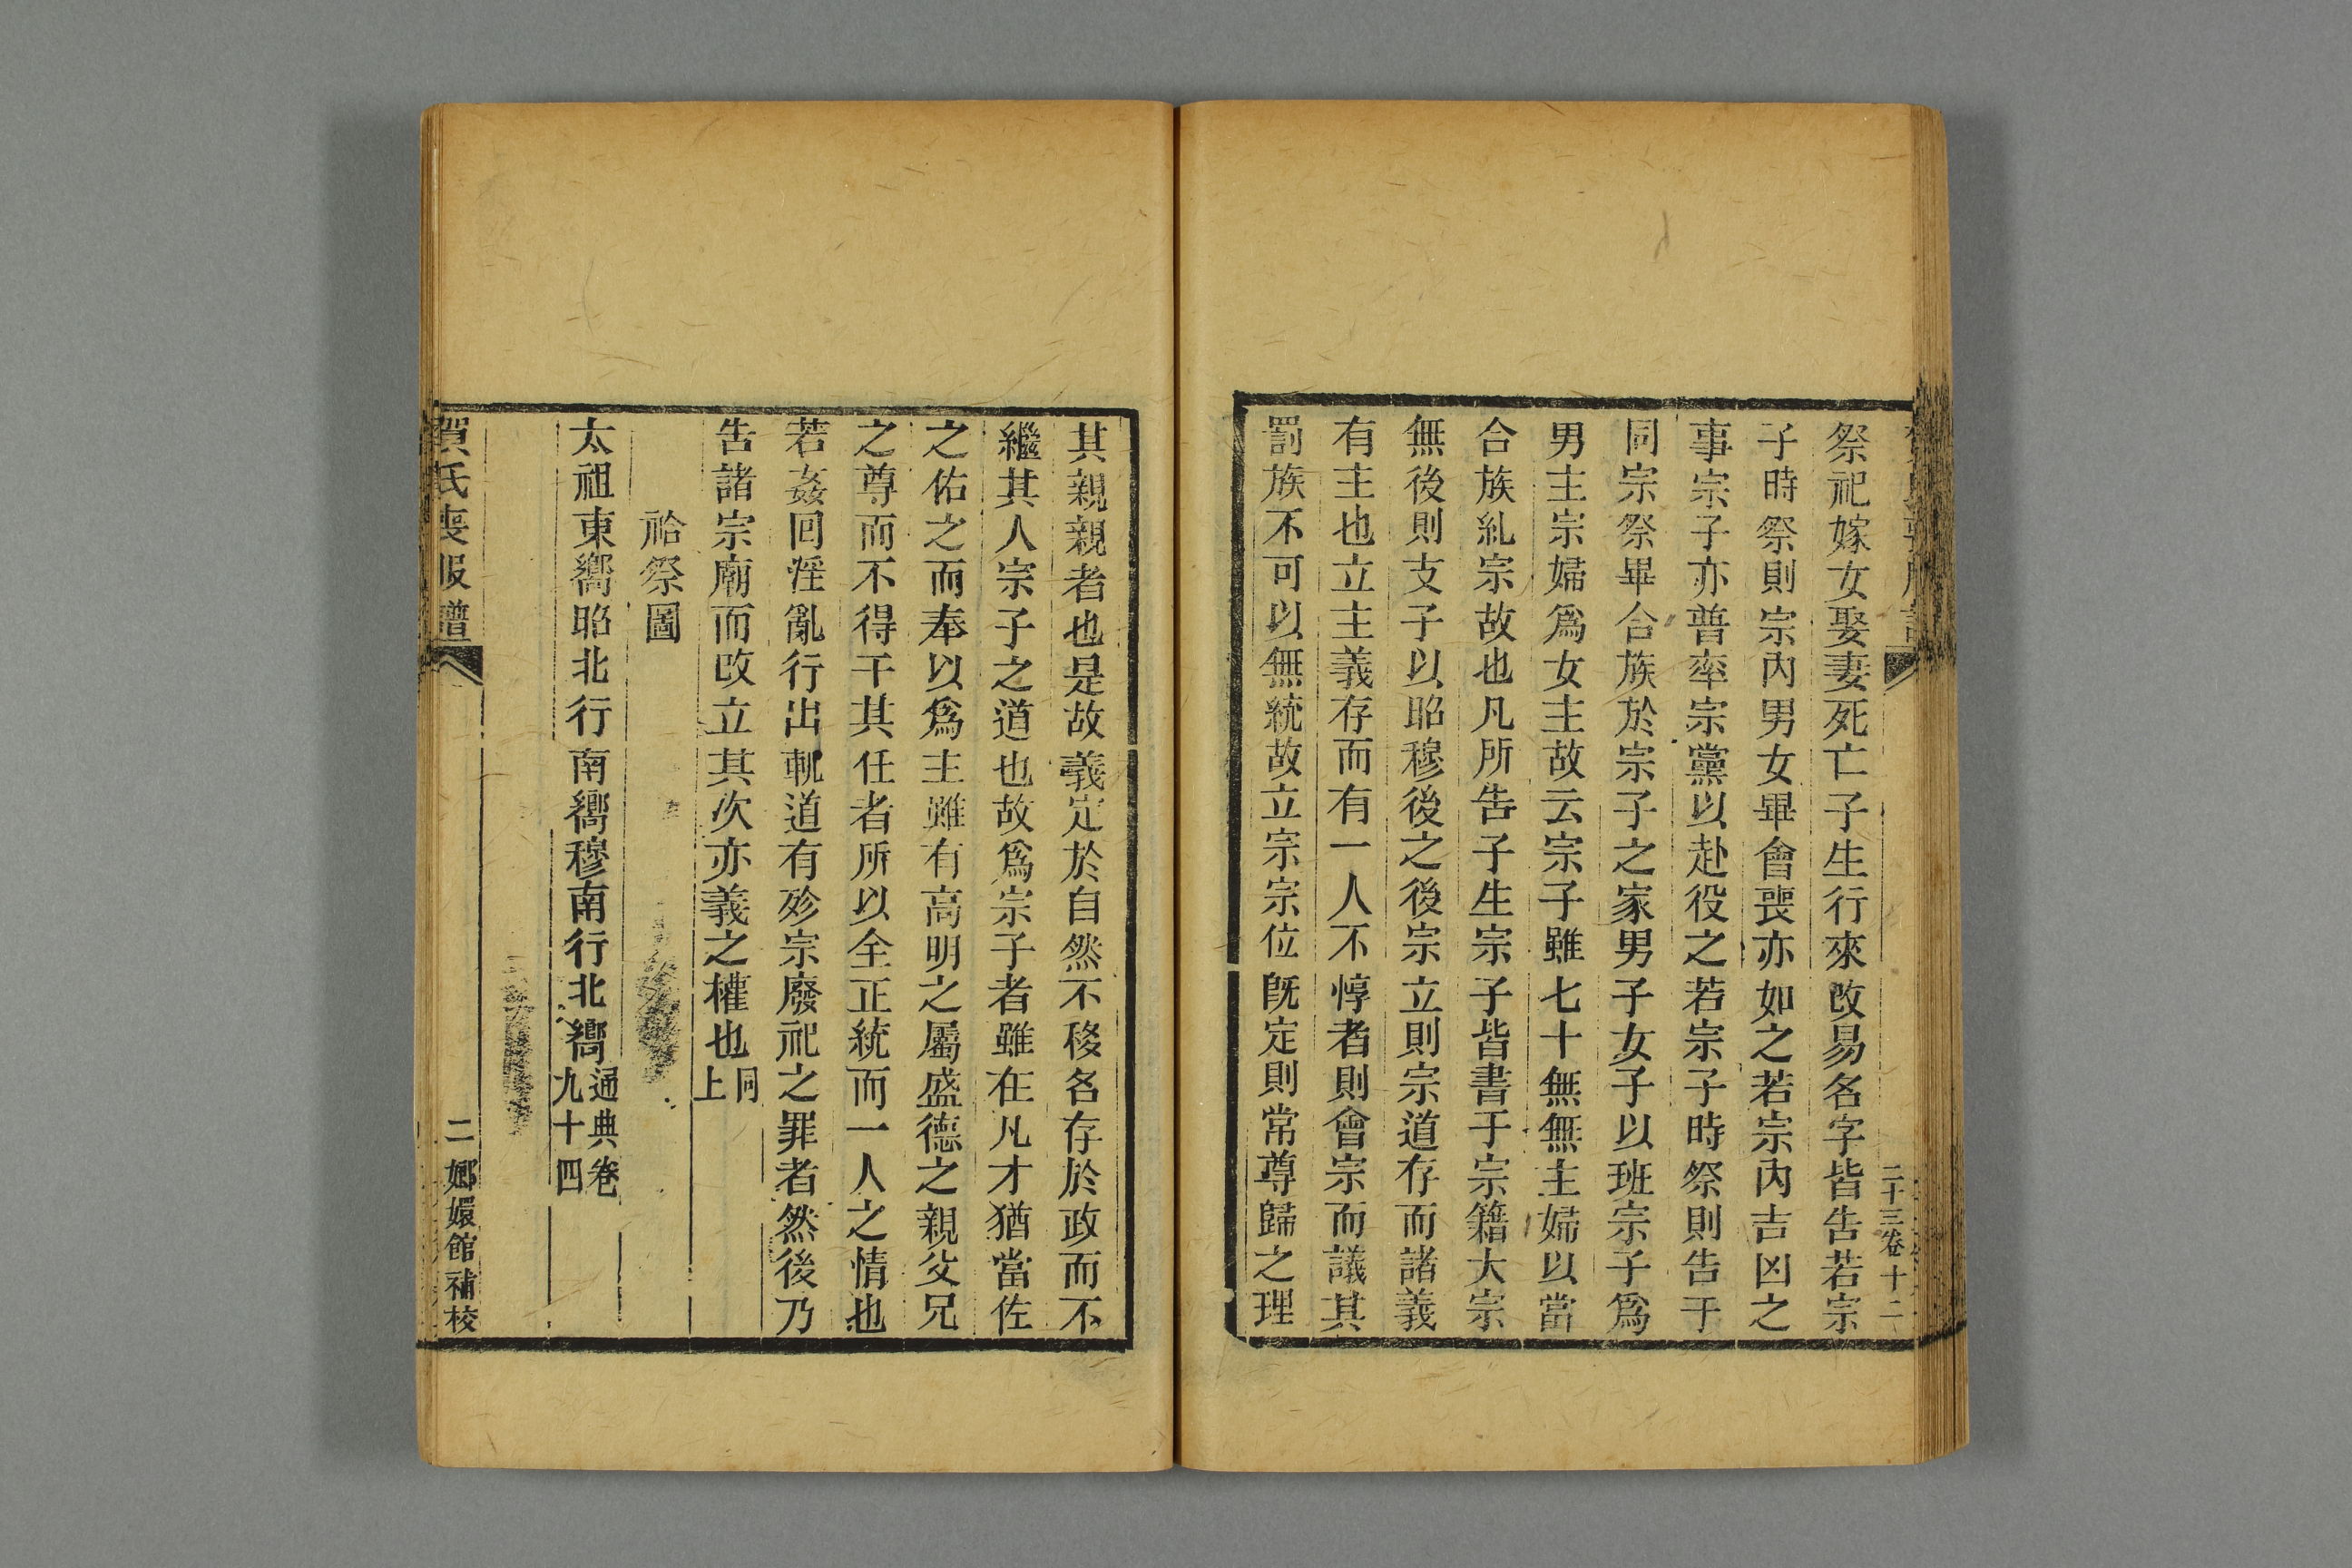 祭祀嫁女娶妻死亡子生行來改易名字皆告若宗
子時祭則宗內男女畢會喪亦如之若宗內吉凶之
事宗子亦普率宗黨以赴役之若宗子時祭則告于
同宗祭畢合族於宗子之家男子女子以班宗子爲
男主宗婦爲女主故云宗子雖七十無無主婦以當
合族糺宗故也凡所告子生宗子皆書于宗籍大宗
無後則支子以昭穆後之後宗立則宗道存而諸義
有主也立主義存而有一人不惇者則會宗而議其
罰族不可以無統故立宗宗位旣定則常尊歸之理
其親親者也是故義定於自然不移名存於政而不
繼其人宗子之道也故爲宗子者雖在凡才猶當佐
之佑之而奉以爲主雖有高明之屬盛德之親父兄
之尊而不得干其任者所以全正統而一人之情也
若姦回淫亂行出軌道有殄宗廢祀之罪者然後乃
告諸宗廟而改立其次亦義之權也同上
祫祭圖
太祖東嚮昭北行南嚮穆南行北嚮通典卷九十四
賀氏喪服譜
二
嫏嬛館補校
二十三卷十二